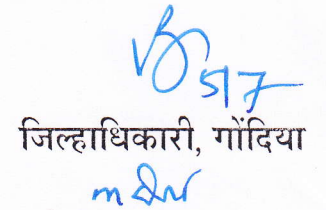 5/7
जिल्हाधिकारी, गोंदिया